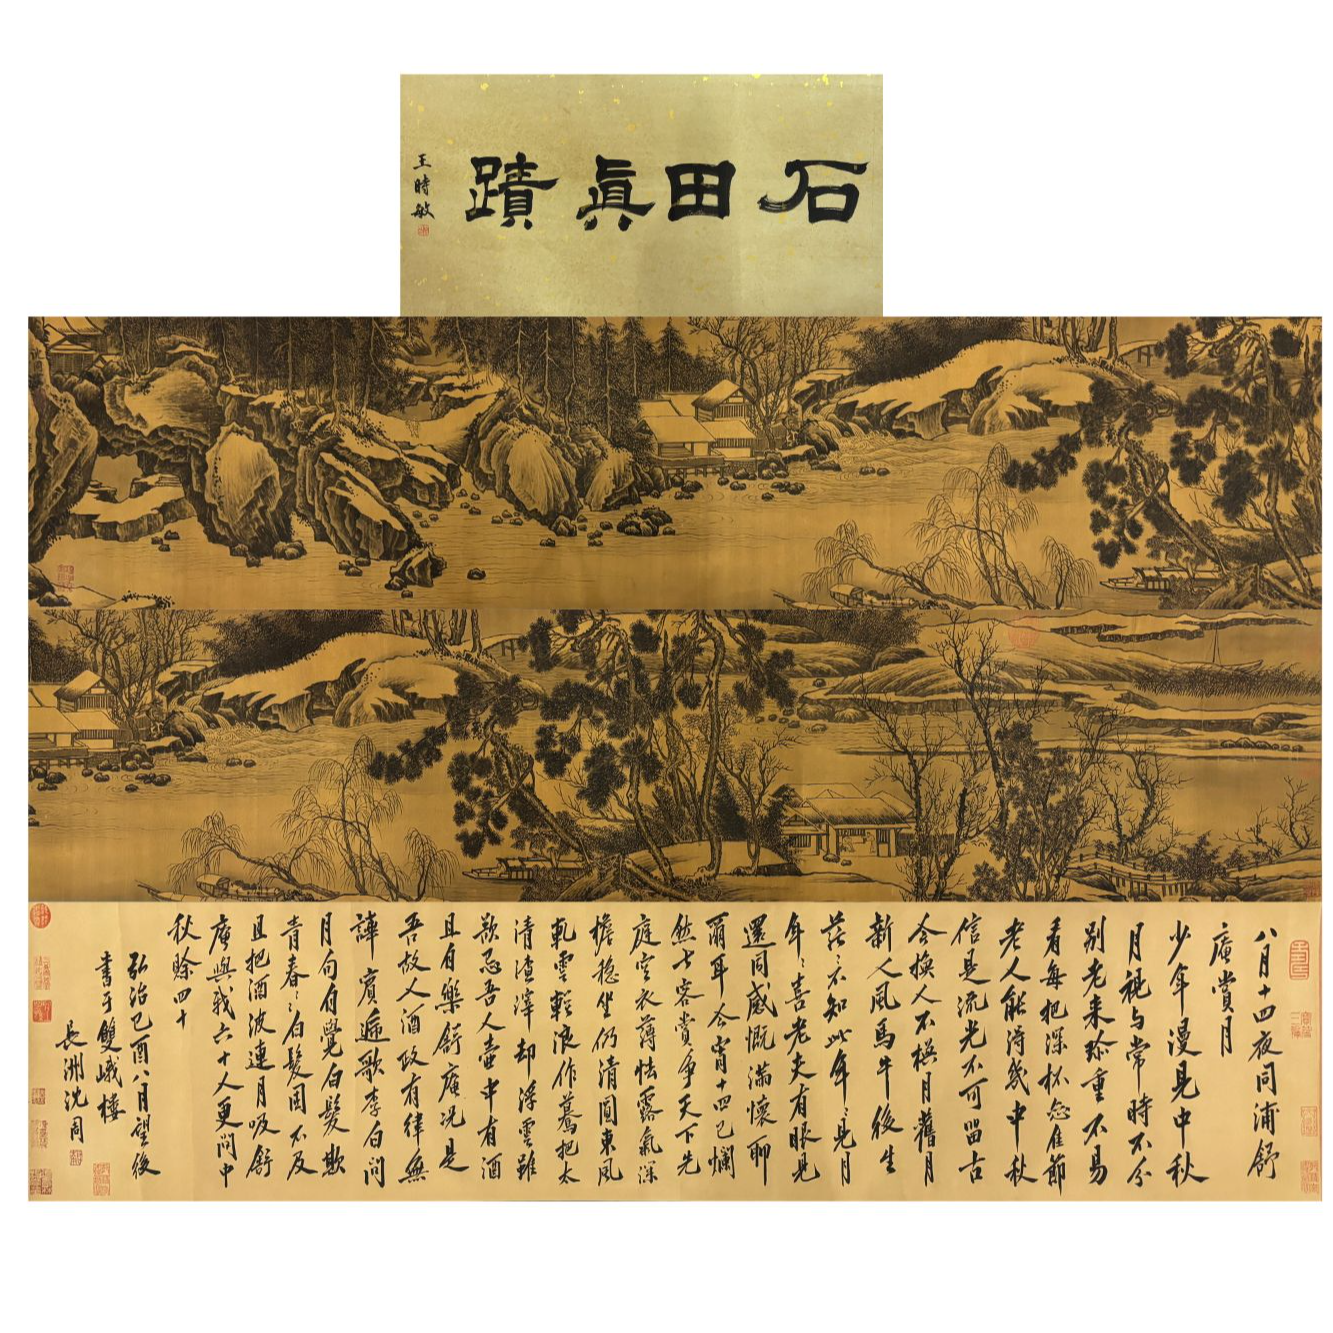 石田眞蹟
王時敏
八月十四夜同浦舒
庵賞月
少年漫見中秋
月視与常時不分
別老来珍重不易
看每把深杯怨佳節
老人能得幾中秋
信是流光不可留古
今換人不換月舊月
新人風馬牛後生
茫〻不知此年〻見月
年〻喜老夫有眼見
還同感慨滿懷聊
爾耳今宵十四已爛
然七客賞爭天下先
庭空衣薄怯露氣深
檐穩坐仍清圓東風
軋雲輕浪作驀把太
清渣滓却浮雲雖
欺忌吾人壺中有酒
且自樂舒庵況是
吾故人酒政有律無
譁賓遞歌李白問
月句自覺白髮欺
青春〻白髮固不及
且把酒波連月吸舒
庵與我六十人更問中
秋賒四十
弘治己酉八月望後
書于雙峨樓
長洲沈周